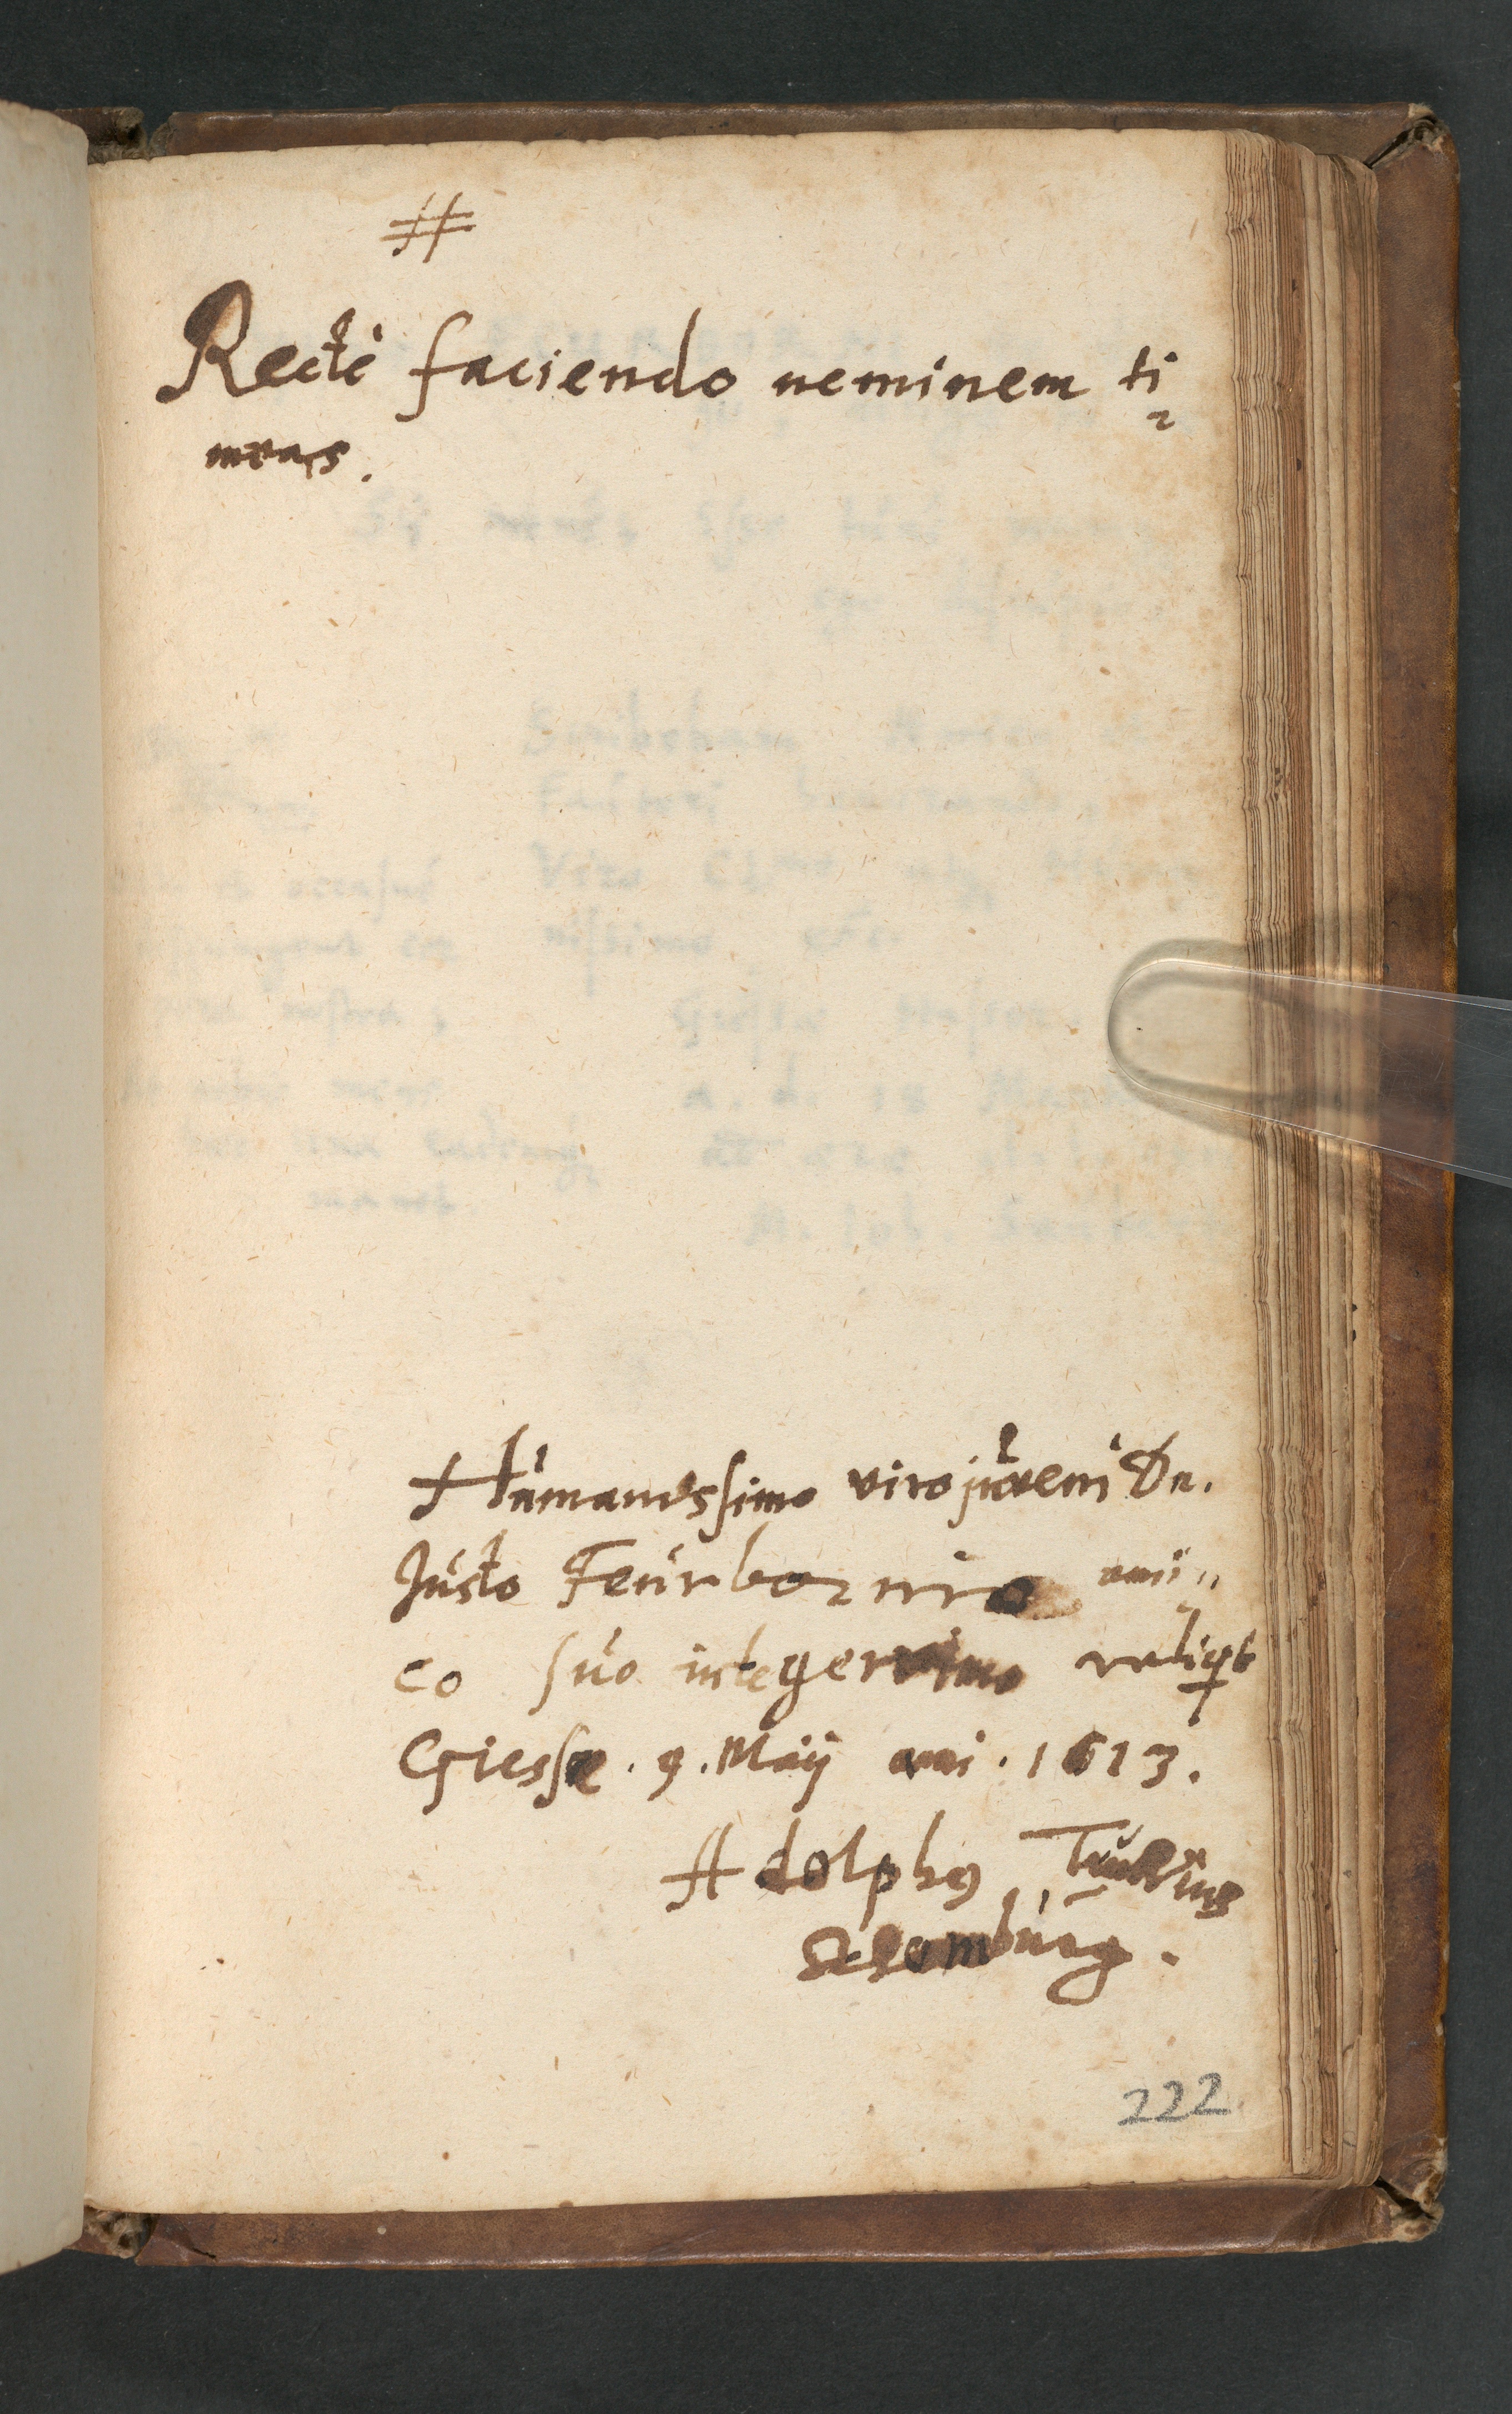 #
Rectè faciendo neminem ti
meas.
Humanissimo viro juveni Dn.
Justo Feurbornio ami
co suo integerrimo reliqit
Giessæ. 9. Maij ani. 1613.
Adolphq
burg.
222